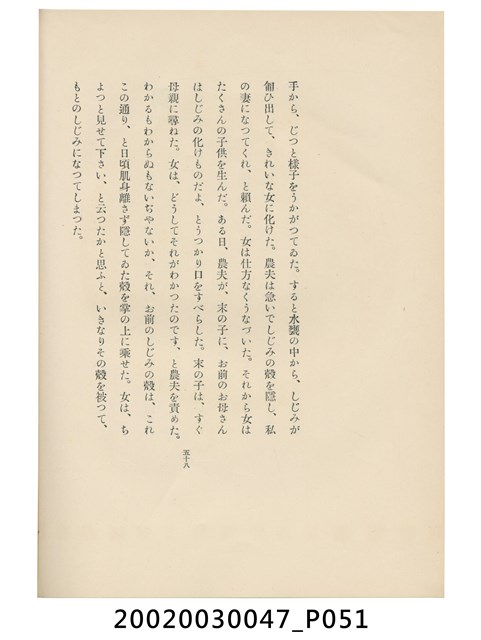 手から、じつと樣子をうかがつてゐた。すると水甕の中から、しじみが
匍ひ出して、きれいな女に化けた。農夫は急いでしじみの殼を隱し、私
の妻になつてくれ、と賴んだ。女は仕方なくうなづいた。それから女は
たくさんの子供を生んだ。ある日、農夫が、末の子に、お前のお母さん
はしじみの化けものだよ、とうつかり口をすべらした。末の子は、すぐ
母親に尋ねた。女は、どうしてそれがわかつたのです、と農夫を責めた。
わかるもわからぬもないぢやないか、それ、お前のしじみの殼は、これ
この通り、と日頃肌身離さず隱してゐた殼を掌の上に乘せた。女は、ち
よつと見せて下さい、と云つたかと思ふと、いきなりその殼を被つて、
もとのしじみになつてしまつた。
五十八
20020030047_P051